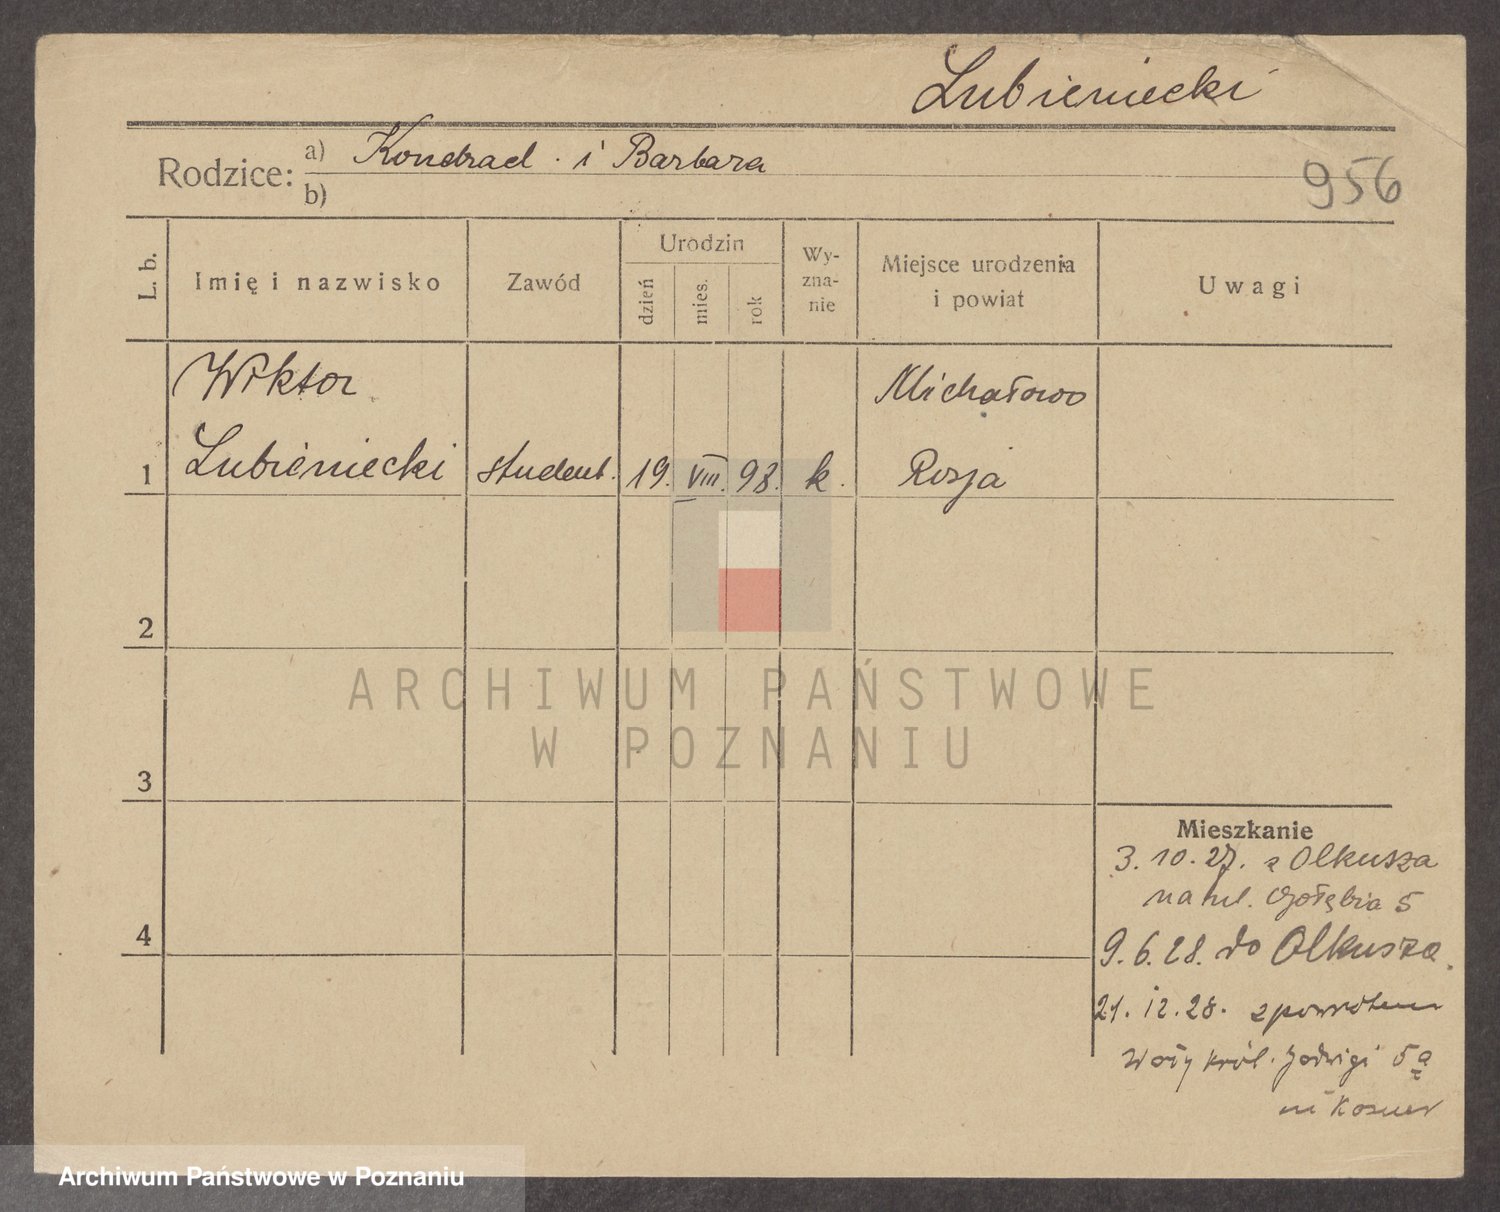 Lubieniecki
Rodzice: a) Kondrad . i Barbara
b)
956
L. b.
Imię i nazwisko
Zawód
Urodzin
dzień
mies.
rok
Wy-
zna-
nie
Miejsce urodzenia
i powiat
Uwagi
Wiktor
Michałowo
1 Lubieniecki student. 19. VIII. 98. k. Rosja
2
ARCHIWUM PAŃSTWOWE
W POZNANIU
3
Mieszkanie
3. 10. 27. z Olkusza
na ul. Gołębia 5
4
9. 6. 28. do Olkusza.
21. 12. 28. z powrotem
Wały król. Jadwigi 5a
Archiwum Państwowe w Poznaniu